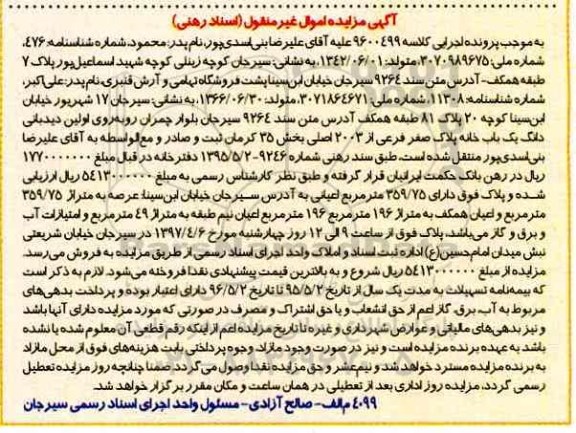 آگهی مزایده اموال غیر منقول (اسناد رهنی)
به موجب پرونده اجرایی کلاسه ۹۶۰۰۴۹۹ علیه آقای علیرضا بنی‌اسدی‌پور، نام پدر: محمود، شماره شناسنامه: ۴۷۶،
شماره ملی: ۳۰۷۰۹۸۹۶۷۵، متولد: ۱۳۴۲/۰۶/۰۱، به نشانی: سیرجان کوچه زینلی کوچه شهید اسماعیل‌پور پلاک ۷
طبقه همکف- آدرس متن سند ۹۲۶۴ سیرجان خیابان ابن‌سینا پشت فروشگاه تهامی و آرش قنبری، نام پدر: علی‌اکبر،
شماره شناسنامه: ۱۱۳۰۸، شماره ملی: ۳۰۷۱۸۶۴۶۷۱، متولد: ۱۳۶۶/۰۶/۳۰، به نشانی: سیرجان ۱۷ شهریور خیابان
ابن‌سینا کوچه ۲۰ پلاک ۸۱ طبقه همکف آدرس متن سند ۹۲۶۴ سیرجان بلوار چمران روبه‌روی اولین دیدبانی
دانگ یک باب خانه پلاک صفر فرعی از ۲۰۰۳ اصلی بخش ۳۵ کرمان ثبت و صادر و مع‌الواسطه به آقای علیرضا
بنی‌اسدی‌پور منتقل شده است، طبق سند رهنی شماره ۹۲۴۶-۱۳۹۵/۵/۲ دفترخانه در قبال مبلغ ۱۷۷۰۰۰۰۰۰۰
ریال در رهن بانک حکمت ایرانیان قرار گرفته و طبق نظر کارشناس رسمی به مبلغ ۵۴۱۳۰۰۰۰۰۰ ریال ارزیابی
شده و پلاک فوق دارای ۳۵۹/۷۵ مترمربع اعیانی به آدرس سیرجان خیابان ابن‌سینا: عرصه به متراژ ۳۵۹/۷۵
مترمربع و اعیان همکف به متراژ ۱۹۶ مترمربع ۱۹۶ مترمربع اعیان نیم طبقه به متراژ ۴۹ مترمربع و امتیازات آب
و برق و گاز می‌باشد، پلاک فوق از ساعت ۹ الی ۱۲ روز چهارشنبه مورخ ۱۳۹۷/۴/۶ در سیرجان خیابان شریعتی
نبش میدان امام حسین(ع) اداره ثبت اسناد و املاک واحد اجرای اسناد رسمی از طریق مزایده به فروش می‌رسد.
مزایده از مبلغ ۵۴۱۳۰۰۰۰۰۰ ریال شروع و به بالاترین قیمت پیشنهادی نقدا فروخته می‌شود. لازم به ذکر است
که بیمه‌نامه تسهیلات به مدت یک سال از تاریخ ۹۵/۵/۲ تا تاریخ ۹۶/۵/۲ دارای اعتبار بوده و پرداخت بدهی‌های
مربوط به آب، برق، گاز اعم از حق انشعاب و یا حق اشتراک و مصرف در صورتی که مورد مزایده دارای آنها باشد
و نیز بدهی‌های مالیاتی و عوارض شهرداری و غیره تا تاریخ مزایده اعم از اینکه رقم قطعی آن معلوم شده یا نشده
باشد به عهده برنده مزایده است و نیز در صورت وجود مازاد، وجوه پرداختی بابت هزینه‌های فوق از محل مازاد
به برنده مزایده مسترد خواهد شد و نیم‌عشر و حق مزایده نقدا وصول می‌گردد. ضمنا چنانچه روز مزایده تعطیل
رسمی گردد، مزایده روز اداری بعد از تعطیلی در همان ساعت و مکان مقرر برگزار خواهد شد.
۴۰۹۹ م‌الف- صالح آزادی- مسئول واحد اجرای اسناد رسمی سیرجان